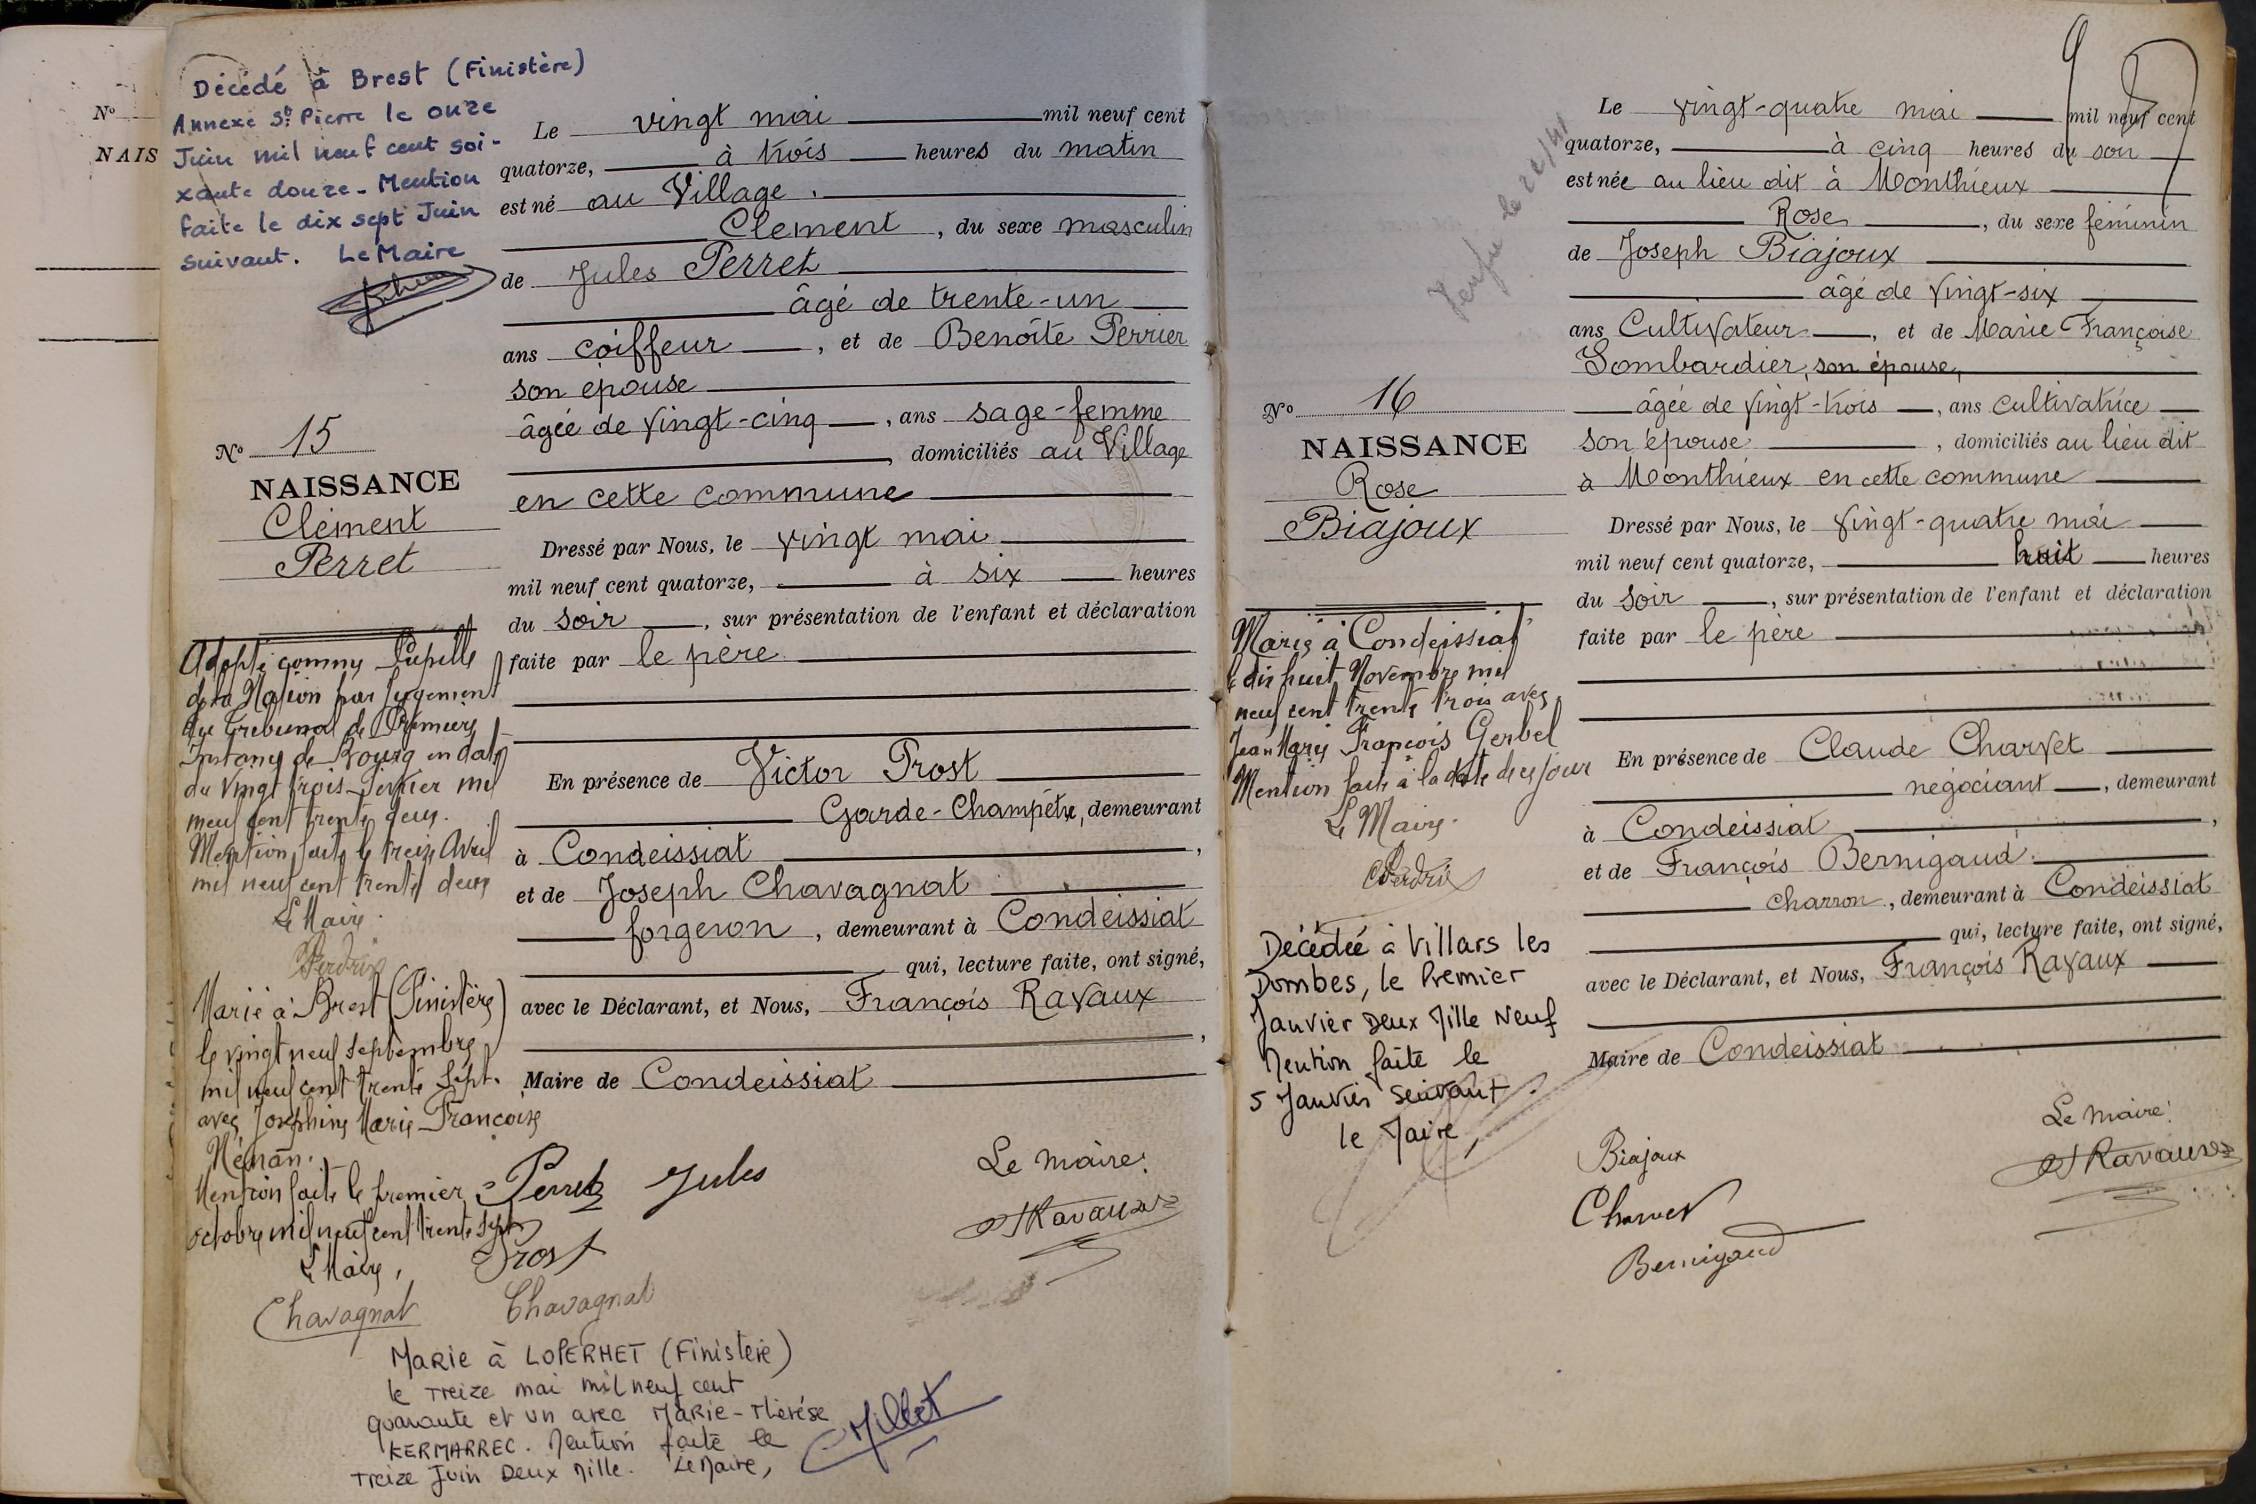 N°
NAIS
Décédé à Brest (Finistère)
Annexe St Pierre le onze
Juin mil neuf cent soi-
xante douze - Mention
faite le dix sept Juin
suivant. Le Maire
N° 15
NAISSANCE
Clément
Perret
Adopté comme Pupille
de la Nation par jugement
du Tribunal de Première
Instance de Bourg en date
du vingt trois Février mil
neuf cent trente deux.
Mention faite le treize Avril
mil neuf cent trente deux
Le Maire.
Perdrix
Marié à Brest (Finistère)
le vingt neuf septembre
mil neuf cent trente sept.
avec Joséphine Marie Françoise
Ménan.
Mention faite le premier
octobre mil neuf cent trente sept
Le Maire,
Chavagnat
Le vingt mai mil neuf cent
quatorze, à trois heures du matin
est né au Village.
Clement, du sexe masculin
de Jules Perret
âgé de trente-un
ans coiffeur, et de Benoîte Perrier
son épouse
âgée de vingt-cinq, ans sage-femme
, domiciliés au Village
en cette commune
Dressé par Nous, le vingt mai
mil neuf cent quatorze, à six heures
du soir, sur présentation de l'enfant et déclaration
faite par le père
En présence de Victor Prost
Garde-Champêtre, demeurant
à Condeissiat,
et de Joseph Chavagnat
forgeron, demeurant à Condeissiat
qui, lecture faite, ont signé,
avec le Déclarant, et Nous, François Ravaux
,
Maire de Condeissiat
Perret Jules
Le maire:
Ravaux
Prost
Chavagnat
Marie à LOPERHET (Finistère)
le Treize mai mil neuf cent
quarante et un avec Marie-Thérèse
KERMARREC. Mention faite le
Treize Juin Deux Mille. Le Maire,
Millet
N° 16
NAISSANCE
Rose
Biajoux
Marié à Condeissiat
le dix huit Novembre mil
neuf cent trente trois avec
Jean Marie François Gerbel
Mention faite à la date de ce jour
Le Maire.
Perdrix
Décédée à Villars les
Dombes, le Premier
Janvier Deux Mille Neuf
Mention faite le
5 Janvier suivant.
le Maire,
Le vingt-quatre mai mil neuf cent
quatorze, à cinq heures du soir
est née au lieu dit à Monthieux
Rose, du sexe féminin
de Joseph Biajoux
âgé de vingt-six
ans Cultivateur, et de Marie Françoise
Lombardier, son épouse,
âgée de vingt-trois, ans cultivatrice
son épouse, domiciliés au lieu dit
à Monthieux en cette commune
Dressé par Nous, le vingt-quatre mai
mil neuf cent quatorze, huit heures
du soir, sur présentation de l'enfant et déclaration
faite par le père
En présence de Claude Charvet
négociant, demeurant
à Condeissiat,
et de François Bernigaud
charron, demeurant à Condeissiat
qui, lecture faite, ont signé,
avec le Déclarant, et Nous, François Ravaux
Maire de Condeissiat
Le maire:
Ravaux
Biajoux
Charvet
Bernigaud